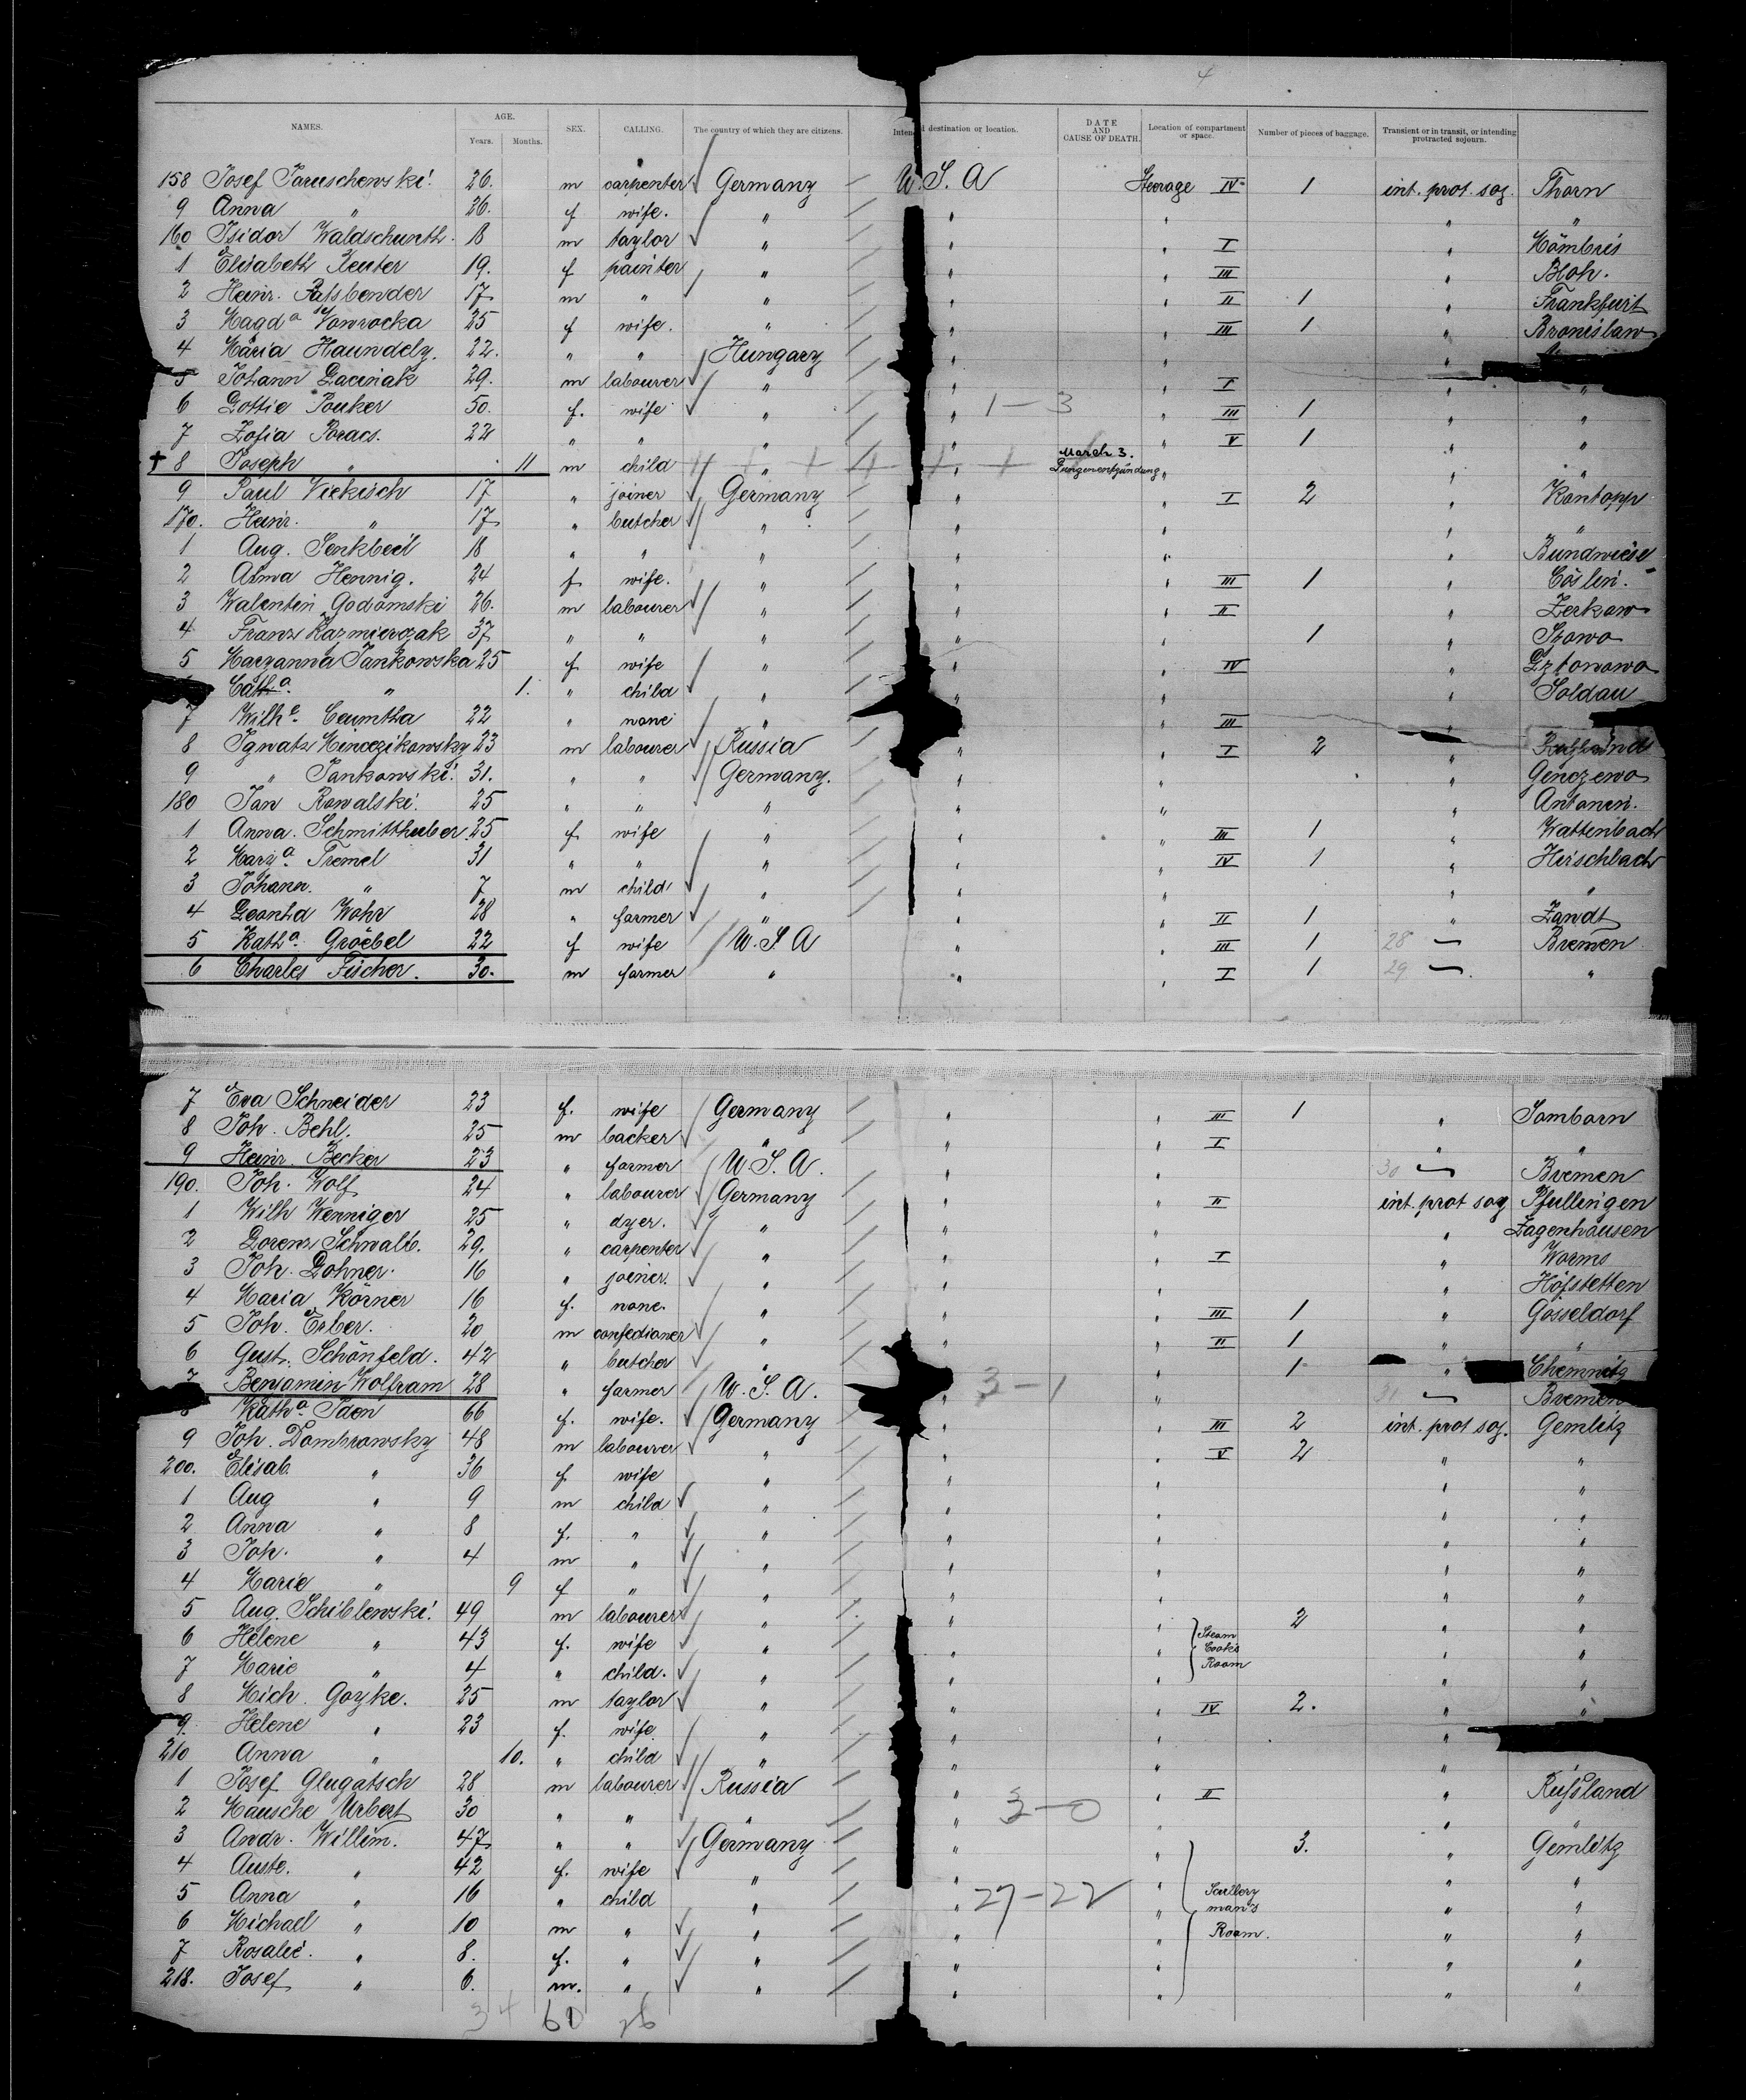 4
NAMES. AGE. Years. Months. SEX. CALLING. The country of which they are citizens. Intended destination or location. DATE AND CAUSE OF DEATH. Location of compartment or space. Number of pieces of baggage. Transient or in transit, or intending protracted sojourn.
158 Josef Paruschewski. 26. m carpenter Germany U.S.A Steerage IV 1 int. prot. soj. Thorn
9 Anna " 26. f wife. " " " " "
160 Isidor Waldschmith. 18 m taylor " " " I " Mömbris
1 Elisabeth Reuter 19. f painter " " " III " Bloh.
2 Heinr. Fatsbender 17 m " " " " II 1 " Frankfurt
3 Magda Nowrocka 25 f wife. " " " III 1 " Bronislaw
4 Maria Haundely. 22. " " Hungary " " "
5 Johann Laciniak 29. m labourer " " " I " "
6 Zottie Pouker 50. f. wife " " 1-3 " III 1 " "
7 Zofia Poracs. 22 " " " " " V 1 " "
8 Joseph " 11 m child " " March 3. Lungenentzündung " "
9 Paul Viekisch 17 " joiner Germany " " I 2 " Kontopp
170. Heinr. " 17 " butcher " " " " "
1 Aug. Senkbeil 18 " " " " " " Bundwiese
2 Alma Hennig. 24 f wife. " " " III 1 " Cöslin.
3 Walentin Godomski 26. m labourer " " " II " Zerkow
4 Franz Kazmierczak 37 " " " " " 1 " Szowo
5 Maryanna Jankowska 25 f wife " " " IV " Lztowowo
Catha. " 1. " child " " " " Soldau
7 Wilhe. Ceumtha 22 " none " " " III "
8 Ignatz Minczikowsky 23 m labourer Russia " " I 2 " Russland
9 " Jankowski. 31. " " Germany. " " " Genczewo
180 Jan Kowalski. 25 " " " " " " Antonin.
1 Anna. Schmitthuber 25 f wife " " " III 1 " Wattenbach
2 Marya. Tremel 31 " " " " " IV 1 " Hirschbach
3 Johann. " 7 m child " " " " "
4 Leonhd Wohr 28 " farmer " " " II 1 " Zandt
5 Katha. Gröebel 22 f wife U.S.A " " III 1 28 Bremen
6 Charles Fischer. 30. m farmer " " " I 1 29 "
7 Eva Schneider 23 f. wife Germany " " III 1 " Somborn
8 Joh. Behl. 25 m backer " " " I " "
9 Heinr. Becker 23 " farmer U.S.A. " " 30 Bremen
190. Joh. Wolf 24 " labourer Germany " " II int. prot soj Pfullingen
1 Wilh Wenniger 25 " dyer. " " " " Zagenhausen
2 Lorenz Schwalb. 29. " carpenter " " " I " Worms
3 Joh. Lohner. 16 " joiner. " " " " Höfstetten
4 Maria Körner 16 f. none. " " " III 1 " Gosseldorf
5 Joh. Erber. 20 m confedianer " " " II 1 " "
6 Gust. Schönfeld. 42 " butcher " " " 1 " Chemnitz
7 Benjamin Wolfram 28 " farmer U.S.A. " 3-1 " 31 Bremen
8 Katha. Iden 66 f. wife. Germany " " III 2 int. prot soj. Gemlitz
9 Joh. Dombrowsky 48 m labourer " " " V 2 " "
200. Elisab. " 36 f wife " " " " "
1 Aug " 9 m child " " " " "
2 Anna " 8 f. " " " " " "
3 Joh. " 4 m " " " " " "
4 Marie " 9 f " " " " " "
5 Aug. Schiblewski. 49 m labourer " " " 2 " "
6 Helene " 43 f. wife " " " Steam " "
7 Marie " 4 " child. " " " Cook's Room " "
8 Mich. Gozke. 25 m taylor " " " IV 2. " "
9. Helene " 23 f. wife " " " "
210 Anna " 10. " child " " " " "
1 Josef Glugatsch 28 m labourer Russia " " II " Russland
2 Mausche Urbert 30 " " " " 3-0 " " "
3 Andr. Willim. 47 " " Germany " " 3. " Gemlitz
4 Auste. " 42 f. wife " " " " "
5 Anna " 16 " child " " 27-22 " Scullery man's " "
6 Michael " 10 m " " " " Room. " "
7 Rosalie. " 8. f. " " " " " "
218. Josef " 6. m. " " " " " "
34 60 26